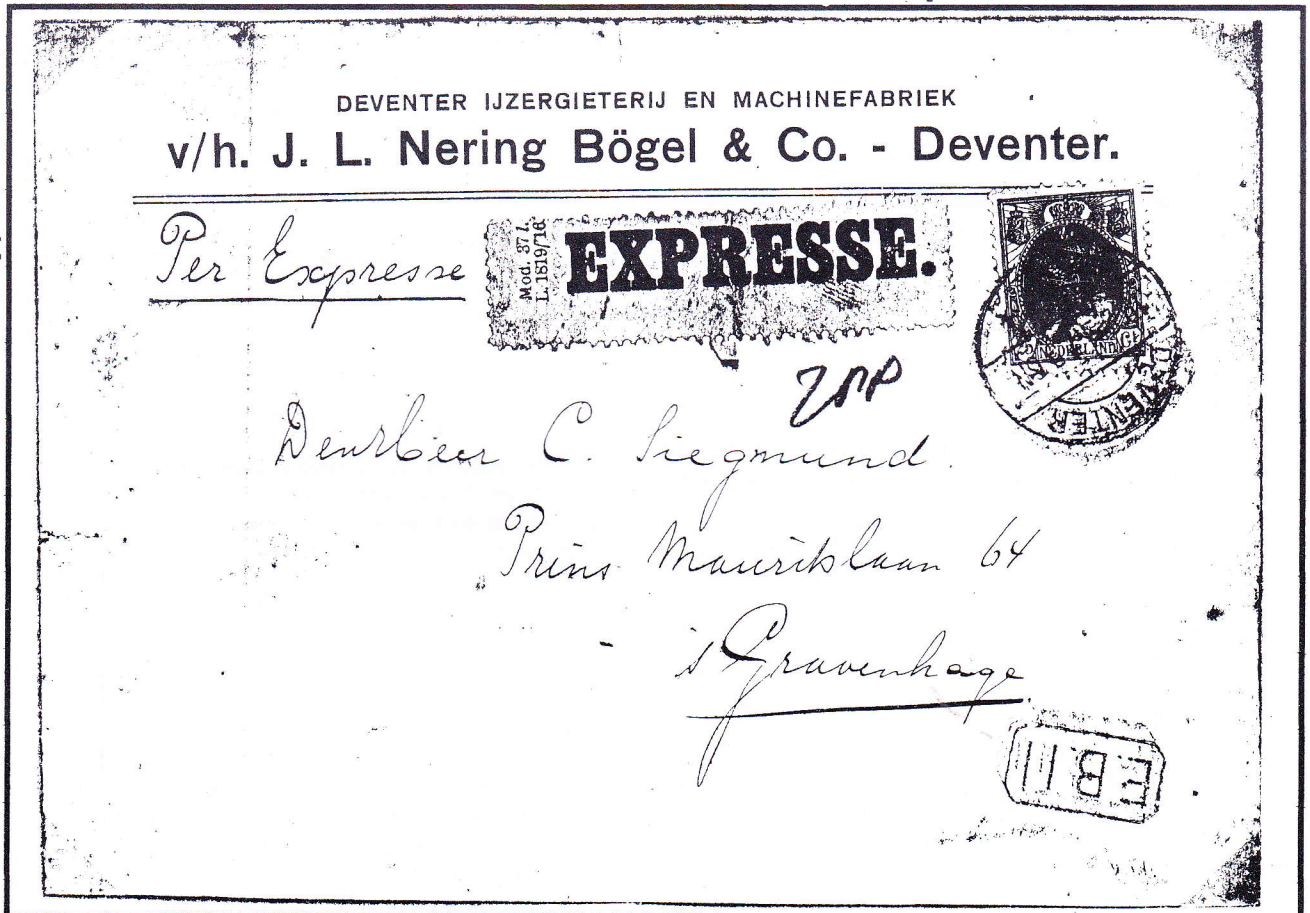 DEVENTER IJZERGIETERIJ EN MACHINEFABRIEK
v/h. J. L. Nering Bögel & Co. - Deventer.
Per Expresse
Mod. 37 l.
L. 1819/'16
EXPRESSE.
NEDERLAND
DEVENTER
C. Siegmund.
Prins Mauritslaan 64
's Gravenhage
E B III